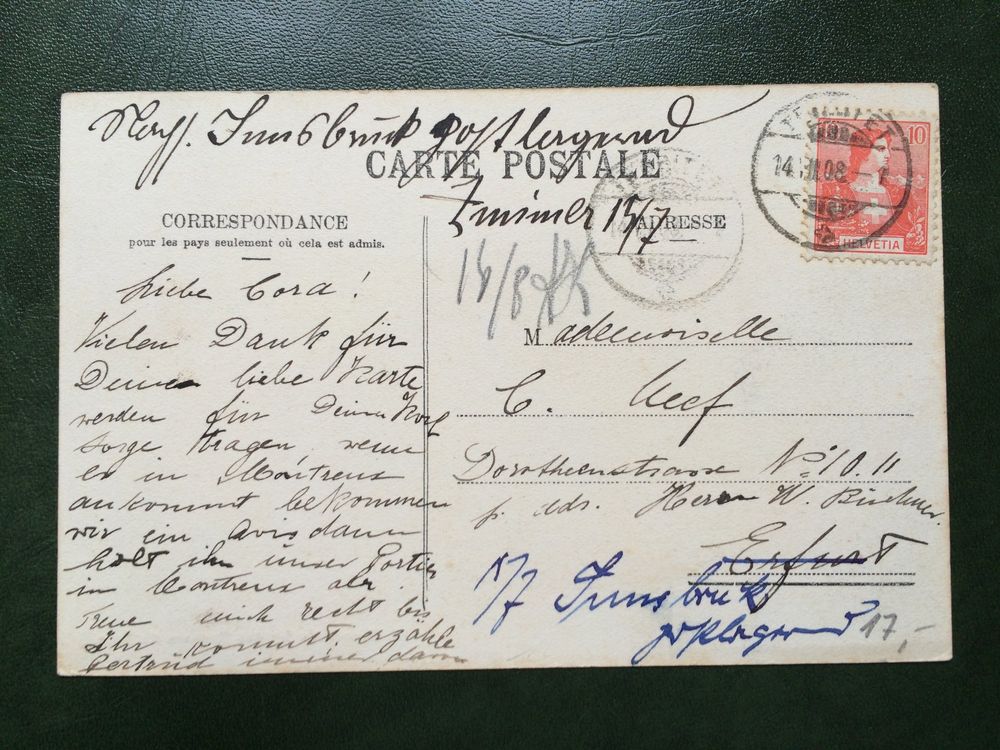 Nach Innsbruck postlagernd
CARTE POSTALE
Zimmer 15/7
CORRESPONDANCE
pour les pays seulement où cela est admis.
ADRESSE
14 08
10
HELVETIA
14/8
Liebe Cora!
Vielen Dank für
Deine liebe Karte
werden für Deinen Korb
sorge tragen, wenn
er in Montreux
ankommt bekommen
wir ein Avis dann
holt ihn unser Portier
in Montreux ab.
Freue mich recht bis
Ihr kommt, erzähle
Gertrud immer davon
Mademoiselle
C. Neef
Dorotheenstrasse No 10 II
p. adr. Herrn W. Büchner
Erfurt
15/7 Innsbruck
postlagernd
17,-